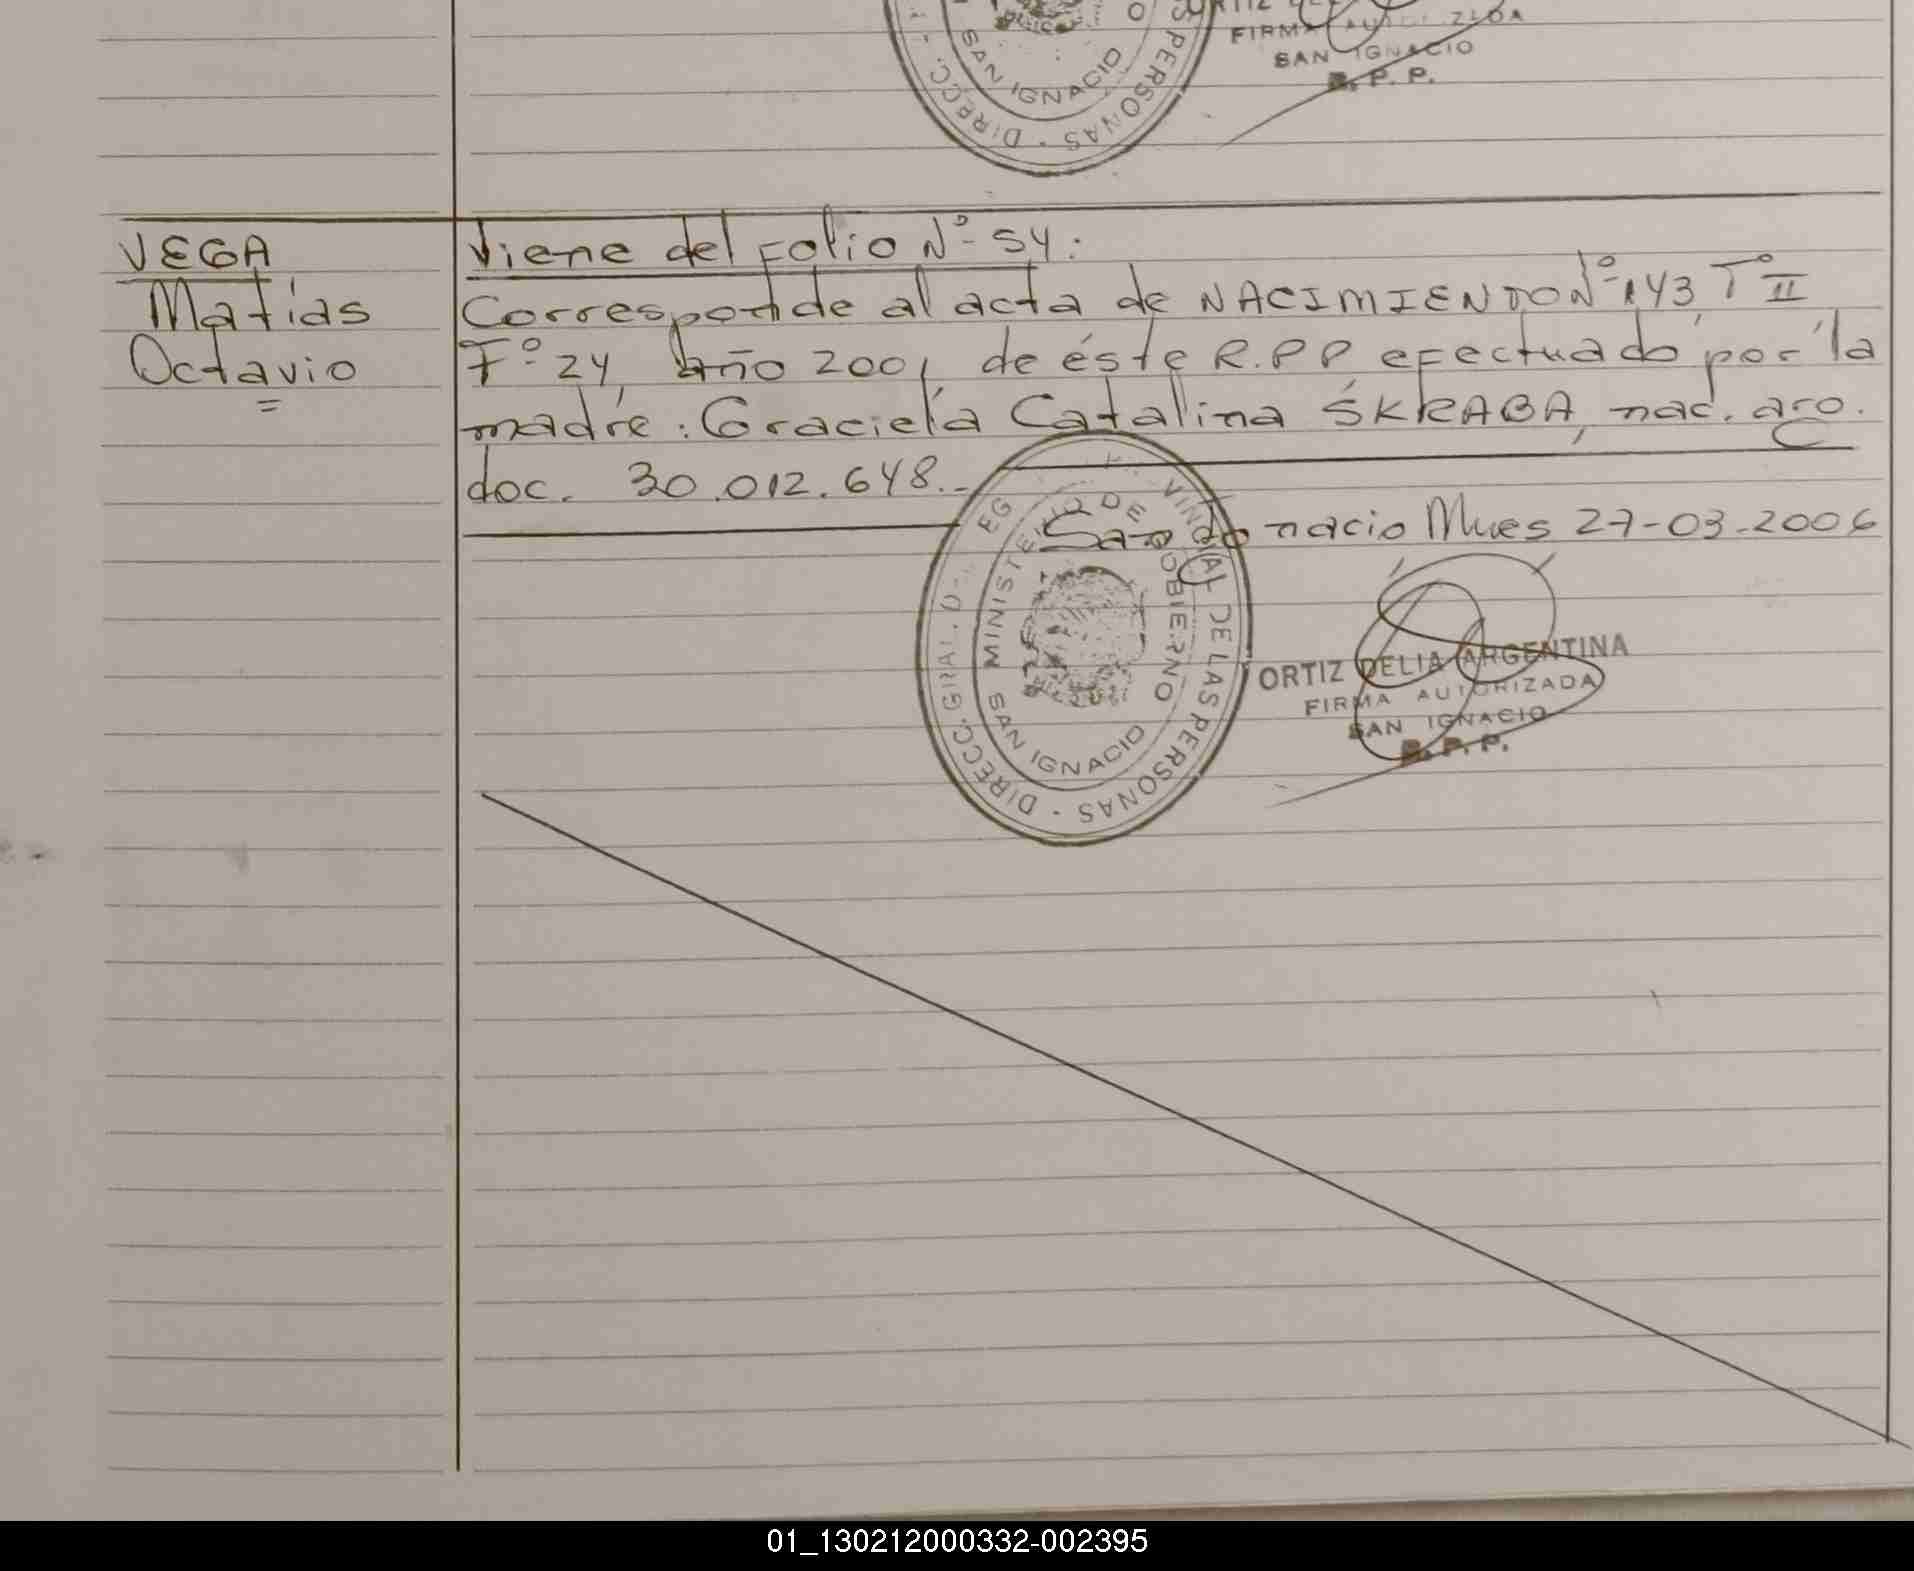 FIRMA AUTORIZADA
SAN IGNACIO
R. P. P.
SAN IGNACIO
DIRECC. PERSONAS
VEGA
Matías
Octavio
Viene del Folio Nº 54:
Corresponde al acta de NACIMIENTO Nº 143 Tº II
Fº 24, año 2001, de éste R.P.P efectuado por la
madre: Graciela Catalina SKRABA, nac. arg.
doc. 30.012.648.-
San Ignacio Mnes 27-03-2006
MINISTERIO DE GOBIERNO
SAN IGNACIO
DIRECC. GRAL. VINCIAL DE LAS PERSONAS
ORTIZ DELIA ARGENTINA
FIRMA AUTORIZADA
SAN IGNACIO
R. P. P.
01_130212000332-002395